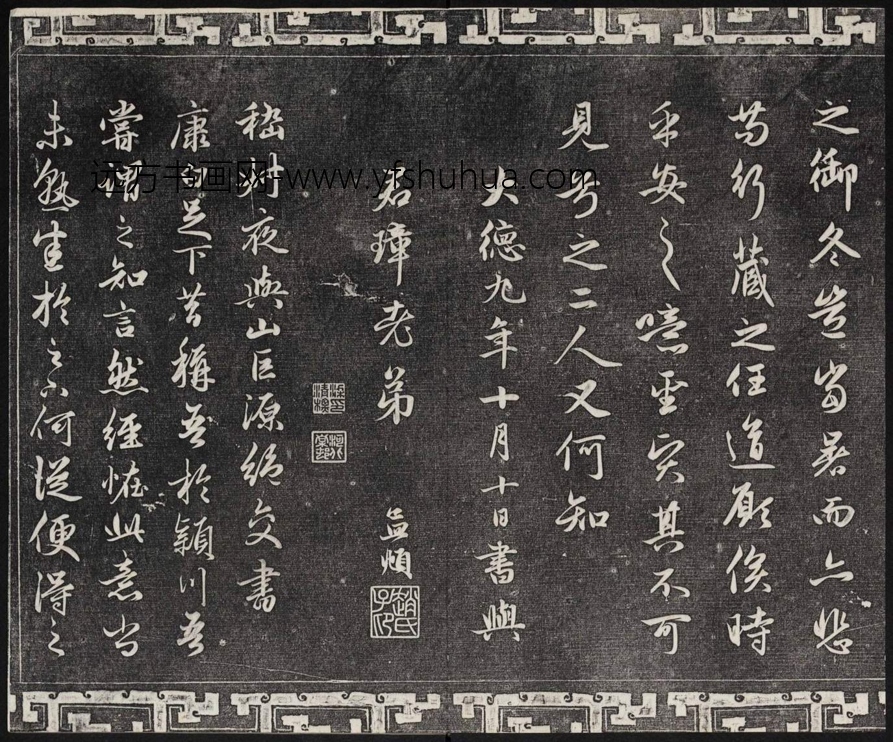 之御冬豈當暑而亦悲
苟行藏之任道顧俟時
乎安之噫聖賢其不可
見兮之二人又何知
大德九年十月十日書與
君璋老弟
孟頫
趙氏子昂
嵇叔夜與山巨源絕交書
康白足下昔稱吾於潁川吾
嘗謂之知言然經怪此意尚
未熟悉於足下何從便得之
远方书画网-www.yfshuhua.com